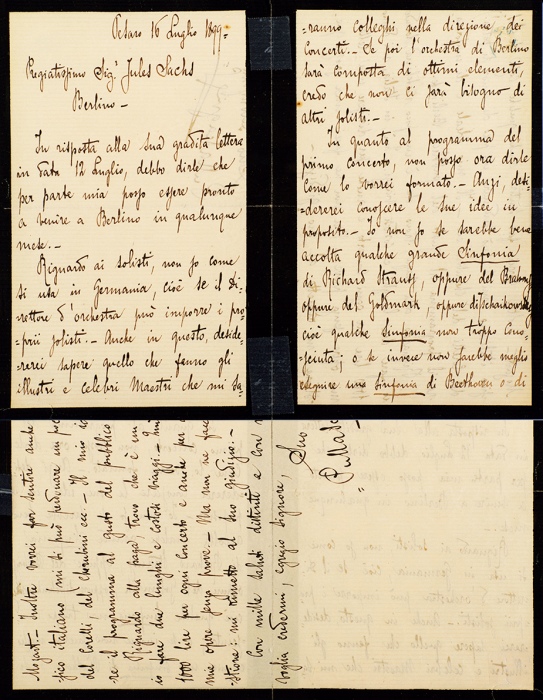 Pesaro 16 Luglio 1899=
Pregiatissimo Sig.r Jules Sachs
Berlino -
In risposta alla sua gradita lettera
in data 12 Luglio, debbo dirle che
per parte mia posso essere pronto
a venire a Berlino in qualunque
mese. -
Riguardo ai solisti, non so come
si usa in Germania, cioè se il Di-
=rettore d'orchestra può imporre i pro=
=prii solisti. - Anche in questo, deside=
=rerei sapere quello che fanno gli
illustri e celebri Maestri che mi sa=
=ranno colleghi nella direzione dei
Concerti. - Se poi l'orchestra di Berlino
sarà composta di ottimi elementi,
credo che non ci sarà bisogno di
altri solisti. -
In quanto al programma del
primo concerto, non posso ora dirle
come lo vorrei formato. - Anzi, desi=
=dererei conoscere le sue idee in
proposito. - Io non so se sarebbe bene
accolta qualche grande Sinfonia
di Richard Strauss, oppure del Brahms,
oppure del Goldmark, oppure di Tschaikowsky
cioè qualche Sinfonia non troppo cono=
=sciuta; o se invece non sarebbe meglio
eseguire una Sinfonia di Beethoven o di
Mozart. - Inoltre vorrei far sentire anche
pico italiano
del Corelli, del Cherubini ecc - Il mio
re il programma al gusto del pubblico
Riguardo alla paga, trovo che è un
io fare due lunghi e costosi viaggi. -
1000 lire per ogni concerto e anche per
mie spese senza prove. - Ma non ne facc
=stione: mi rimetto al suo giudizio. -
Con mille saluti distinti e con
voglia credermi, egregio Signore,
Suo